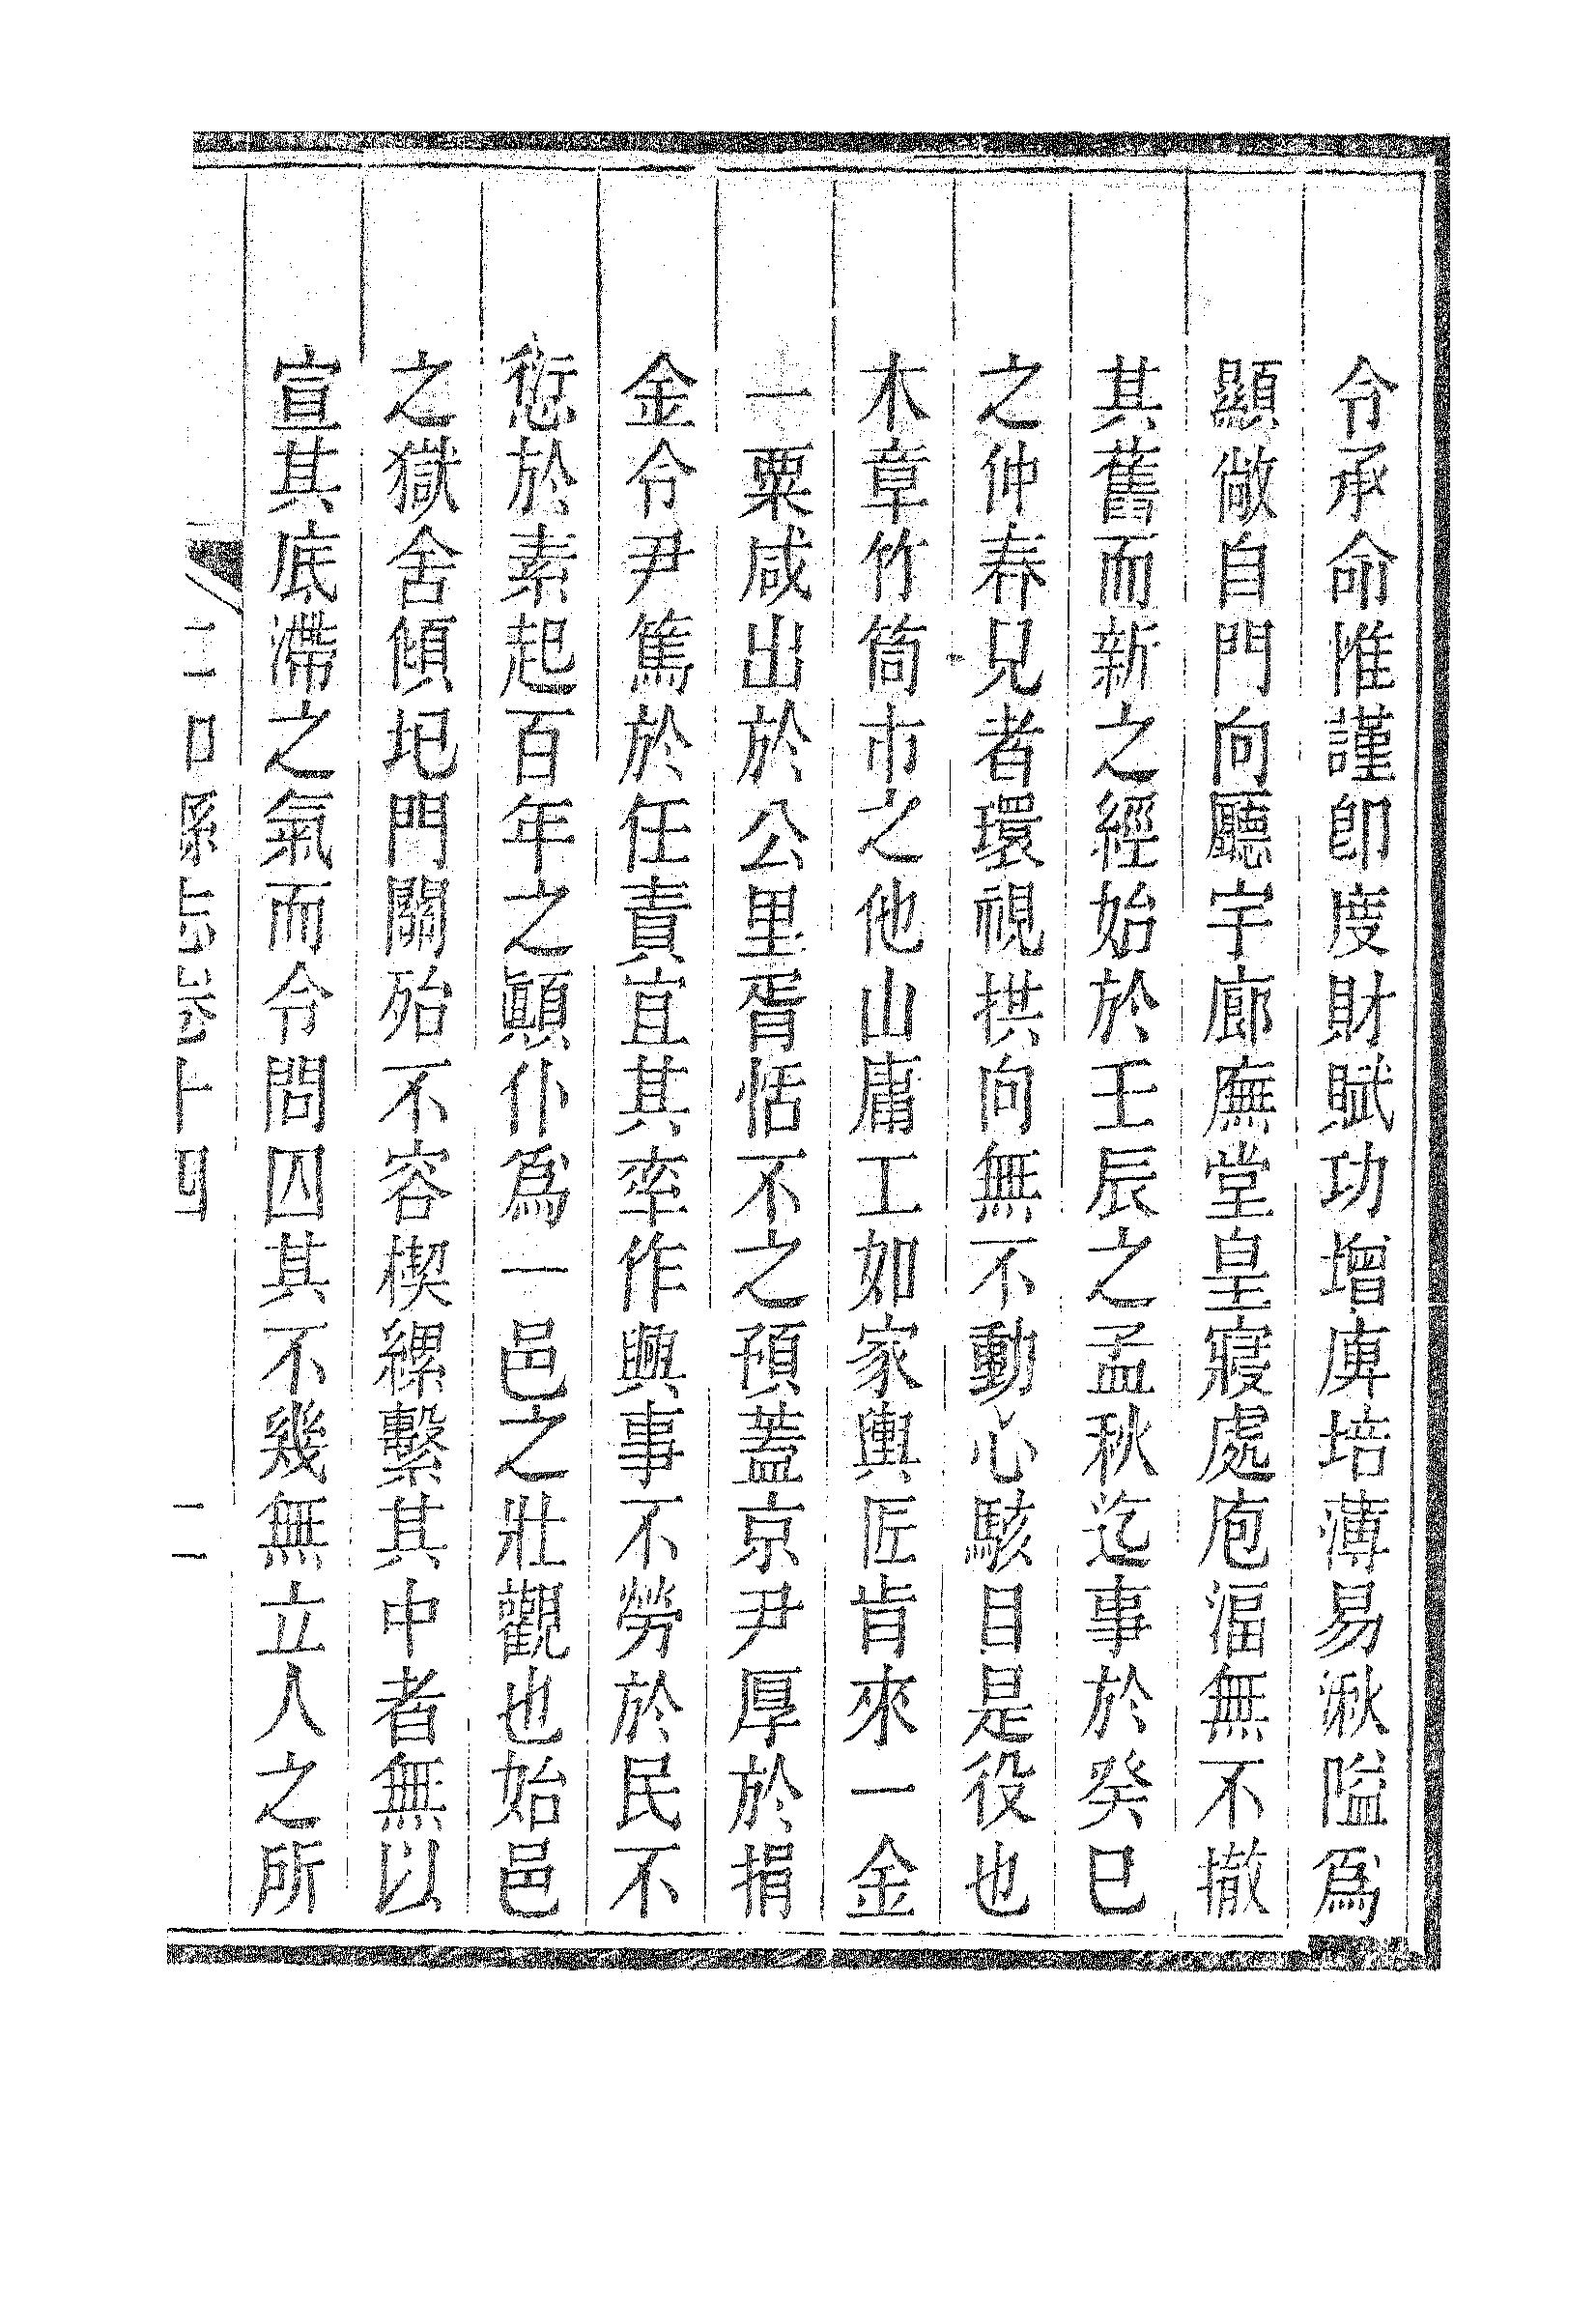 令承命惟謹卽度財賦功增庳培薄易湫隘爲
顯敞自門向廳宇廊廡堂皇寢處庖湢無不撤
其舊而新之經始於壬辰之孟秋迄事於癸巳
之仲春兄者環視拱向無不動心駭目是役也
木章竹筒市之他山庸工如家輿匠肯來一金
一粟咸出於公里胥恬不之預蓋京尹厚於捐
金令尹篤於任責宜其率作興事不勞於民不
愆於素起百年之顚仆爲一邑之壯觀也始邑
之獄舍傾圯門關殆不容楔縲繫其中者無以
宣其底滯之氣而令問囚其不幾無立人之所
口縣志卷十四
二